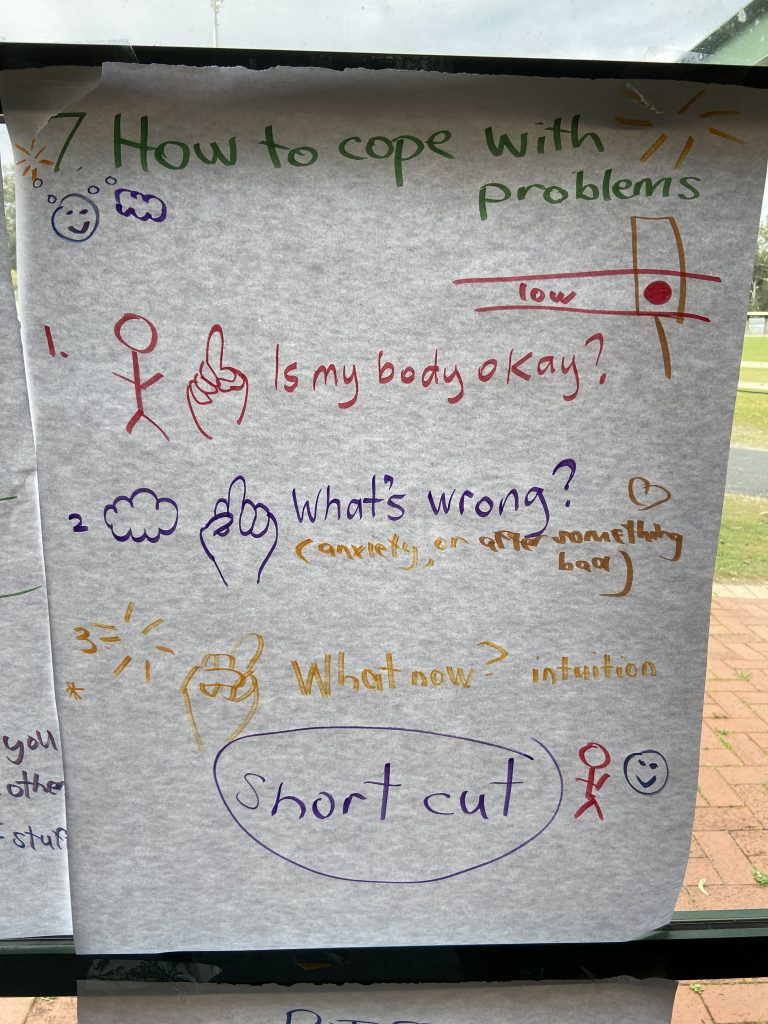 7 How to cope with
problems
low
1. Is my body okay?
2 What's wrong?
(anxiety, or after something
bad)
3= What now? intuition
*
short cut
you
other
stuff